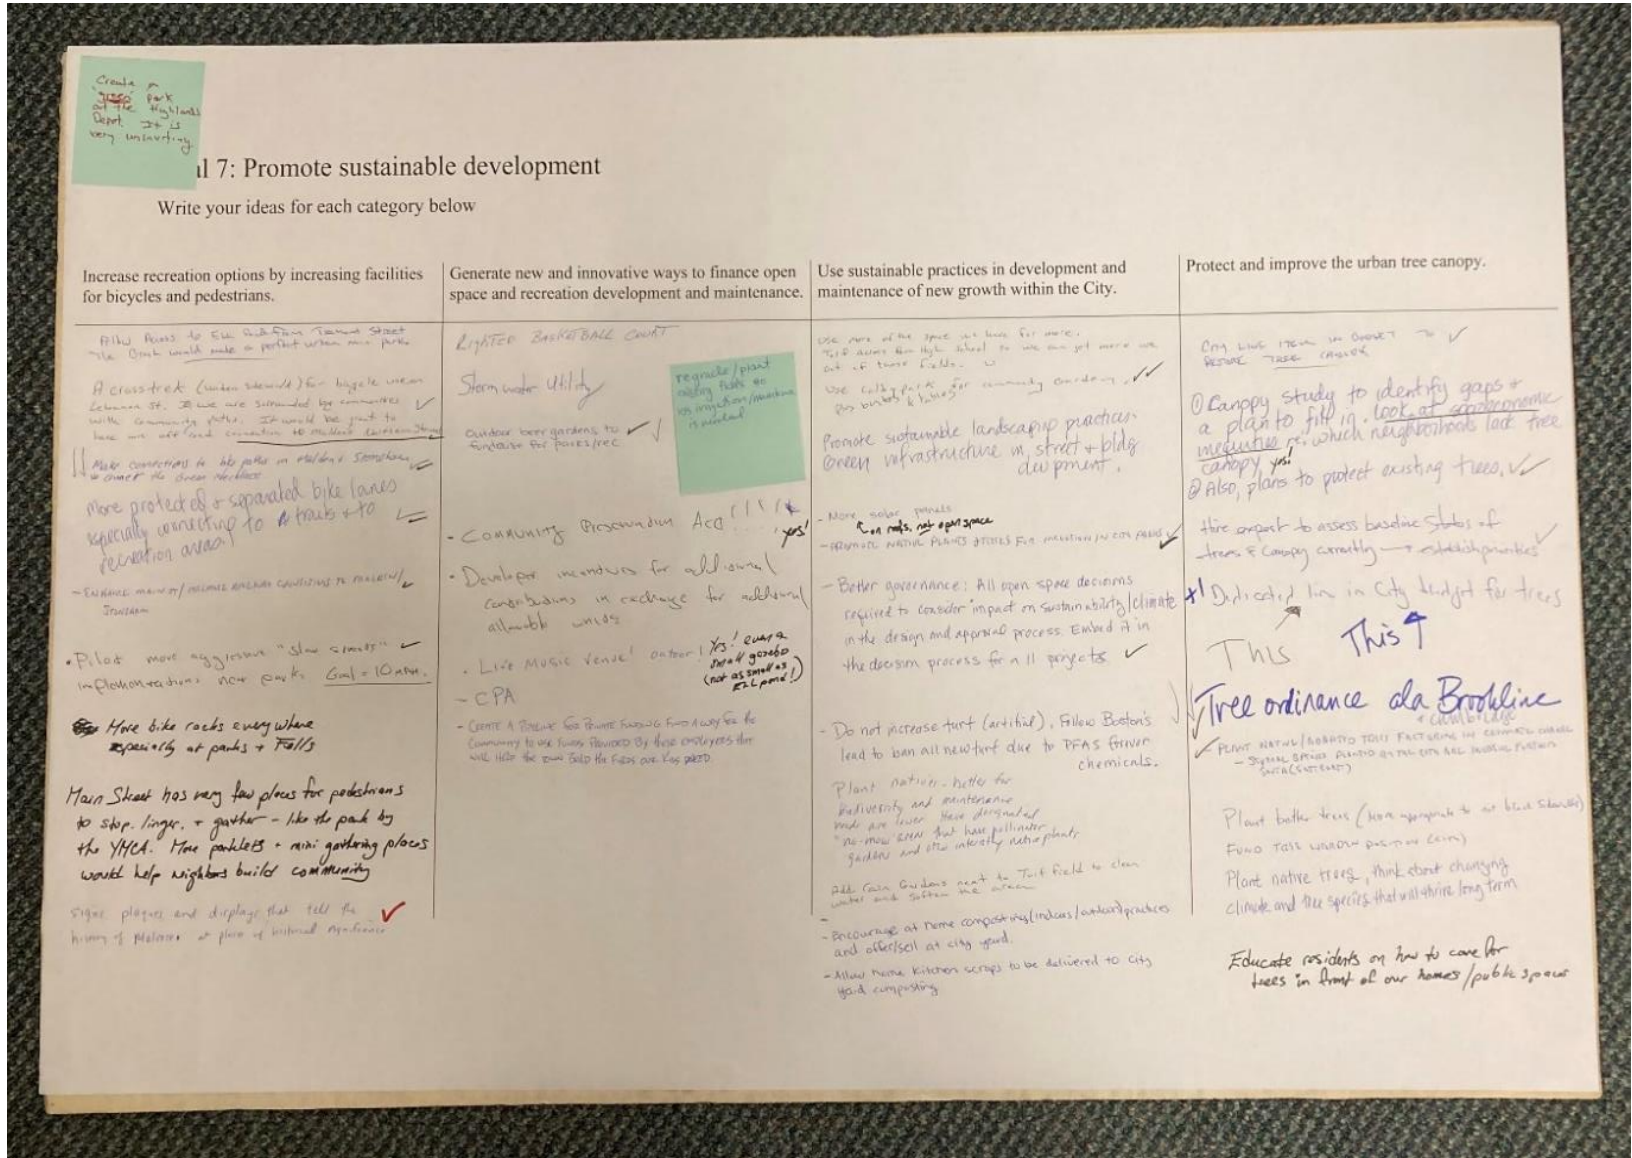 Create a
park
at the Highlands
Depot. It is
very uninviting
al 7: Promote sustainable development
Write your ideas for each category below
Increase recreation options by increasing facilities
for bicycles and pedestrians.
to Ell from Tremont Street
would make a perfect urban mini park.
A cross trek for bicycle use on
Lebanon St. we are surrounded by communities
with community paths. It would be great to
have an off road connection to
Make connections to bike paths in Malden & Stoneham
More protected & separated bike lanes
especially connecting to trails & to
recreation areas!
• Pilot more aggressive "slow streets"
implementations near parks. Goal = 10 mph.
More bike racks everywhere
especially at parks + Fells
Main Street has very few places for pedestrians
to stop, linger, + gather – like the park by
the YMCA. More parklets + mini gathering places
would help neighbors build community
Signs, plaques and displays that tell the
history of Melrose at place of historical significance
Generate new and innovative ways to finance open
space and recreation development and maintenance.
LIGHTED BASKETBALL COURT
Stormwater Utility
outdoor beer gardens to
fundraise for parks/rec
regrade/plant
existing
so irrigation/
is
• Community Preservation Act!!!!
yes!
• Developer incentives for additional
contributions in exchange for additional
allowable units
• Live Music venue! outdoor!
Yes! even a
small gazebo
(not as small as
Ell pond!)
- CPA
- CREATE A FOR PRIVATE FUNDING FOR THE
COMMUNITY TO USE FUNDS PROVIDED BY
Use sustainable practices in development and
maintenance of new growth within the City.
Use more of the space we have for more.
Turf across from High School so we can get more use
out of those fields.
Use Colby park for community gardening.
Promote sustainable landscaping practices.
Green infrastructure in street & bldg
development.
- More solar panels
on roofs, not open space
- PROMOTE NATIVE PLANTS & TREES FOR IN CITY PARKS
- Better governance: All open space decisions
required to consider impact on sustainability/climate
in the design and approval process. Embed it in
the decision process for all projects
- Do not increase turf (artificial). Follow Boston's
lead to ban all new turf due to PFAS forever
chemicals.
Plant natives. better for
biodiversity and maintenance
needs are lower. Have designated
"no-mow" that have pollinator
gardens and other interesting native plants
Add Rain Gardens next to Turf field to clean
water and soften the area
- Encourage at home composting (indoors/outdoor) practices
and offer/sell at city yard.
- Allow home kitchen scraps to be delivered to city
yard composting
Protect and improve the urban tree canopy.
CITY LINE ITEM IN BUDGET TO
RESTORE TREE CANOPY
① Canopy study to identify gaps &
a plan to fill in. Look at socioeconomic
inequities re. which neighborhoods lack tree
canopy, yes!
② Also, plans to protect existing trees.
Hire expert to assess baseline status of
trees & canopy currently → establish priorities
+1 Dedicated line in City budget for trees
This This
Tree ordinance ala Brookline
+ Cambridge
PLANT NATIVE/ADAPTED TREES FACTORING IN CLIMATE CHANGE
Plant better trees (more appropriate to
FUND TREE WARDEN POSITION (CITY)
Plant native trees, think about changing
climate and tree species that will thrive long term
Educate residents on how to care for
trees in front of our homes/public spaces